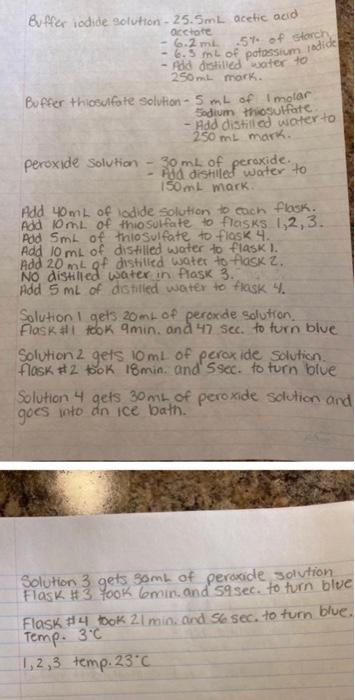 Buffer iodide solution - 25.5mL acetic acid
acetate
- 6.2 mL .5% of starch
- 6.5 mL of potassium iodide
- Add distilled water to
250 mL mark.
Buffer thiosulfate solution - 5 mL of 1 molar
sodium thiosulfate.
- Add distilled water to
250 mL mark.
peroxide solution - 30 mL of peroxide.
- Add distilled water to
150 mL mark.
Add 40 mL of iodide solution to each flask.
Add 10 mL of thiosulfate to flasks 1,2,3.
Add 5mL of thiosulfate to flask 4.
Add 10 mL of distilled water to flask 1.
Add 20 mL of distilled water to flask 2.
NO distilled water in flask 3.
Add 5 mL of distilled water to flask 4.
Solution 1 gets 20mL of peroxide solution.
Flask #1 took 9min. and 47 sec. to turn blue
Solution 2 gets 10 mL of peroxide solution.
flask #2 took 18min. and 5sec. to turn blue
Solution 4 gets 30mL of peroxide solution and
goes into an ice bath.
Solution 3 gets 30mL of peroxide solution
Flask #3 took 6min. and 59 sec. to turn blue
Flask #4 took 21 min. and 56 sec. to turn blue.
Temp. 3°C
1,2,3 temp. 23°C